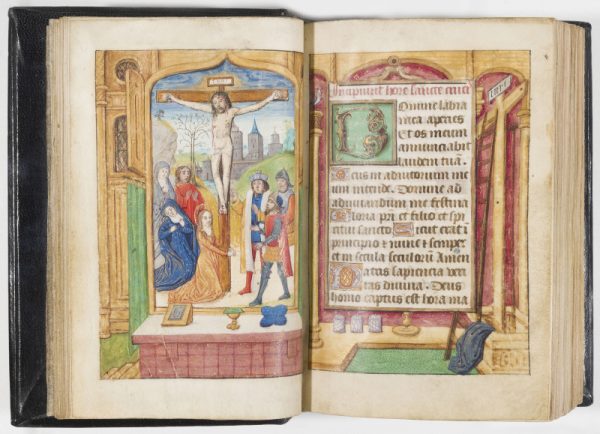 INRI
Incipiunt hore sancte crucis
Domine labia
mea aperies
Et os meum
annunciabit
laudem tuā.
Deus in adiutorium me
um intende. Domine ad
adiuuandum me festina
Gloria pr̄i et filio et spi
ritui sancto Sicut erat ī
principio & nunc & semper
et in secula seculorū Amen
Patris sapiencia veri
tas diuina. Deus
homo captus est hora ma